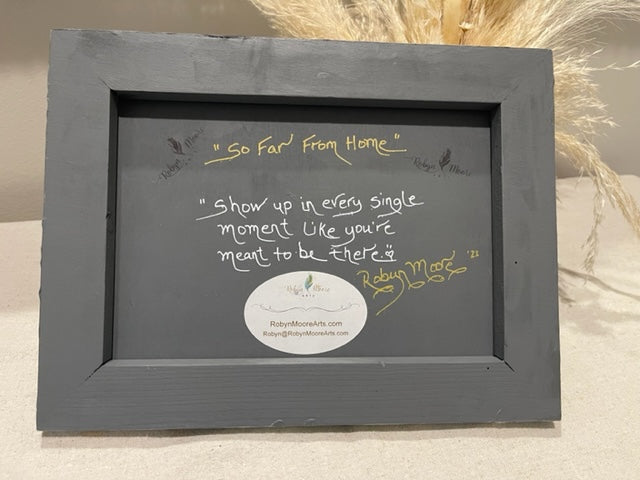 "So Far From Home"
Robyn Moore
Robyn Moore
"Show up in every single
moment like you're
meant to be there."
Robyn Moore '23
Robyn Moore
ARTS
RobynMooreArts.com
Robyn@RobynMooreArts.com